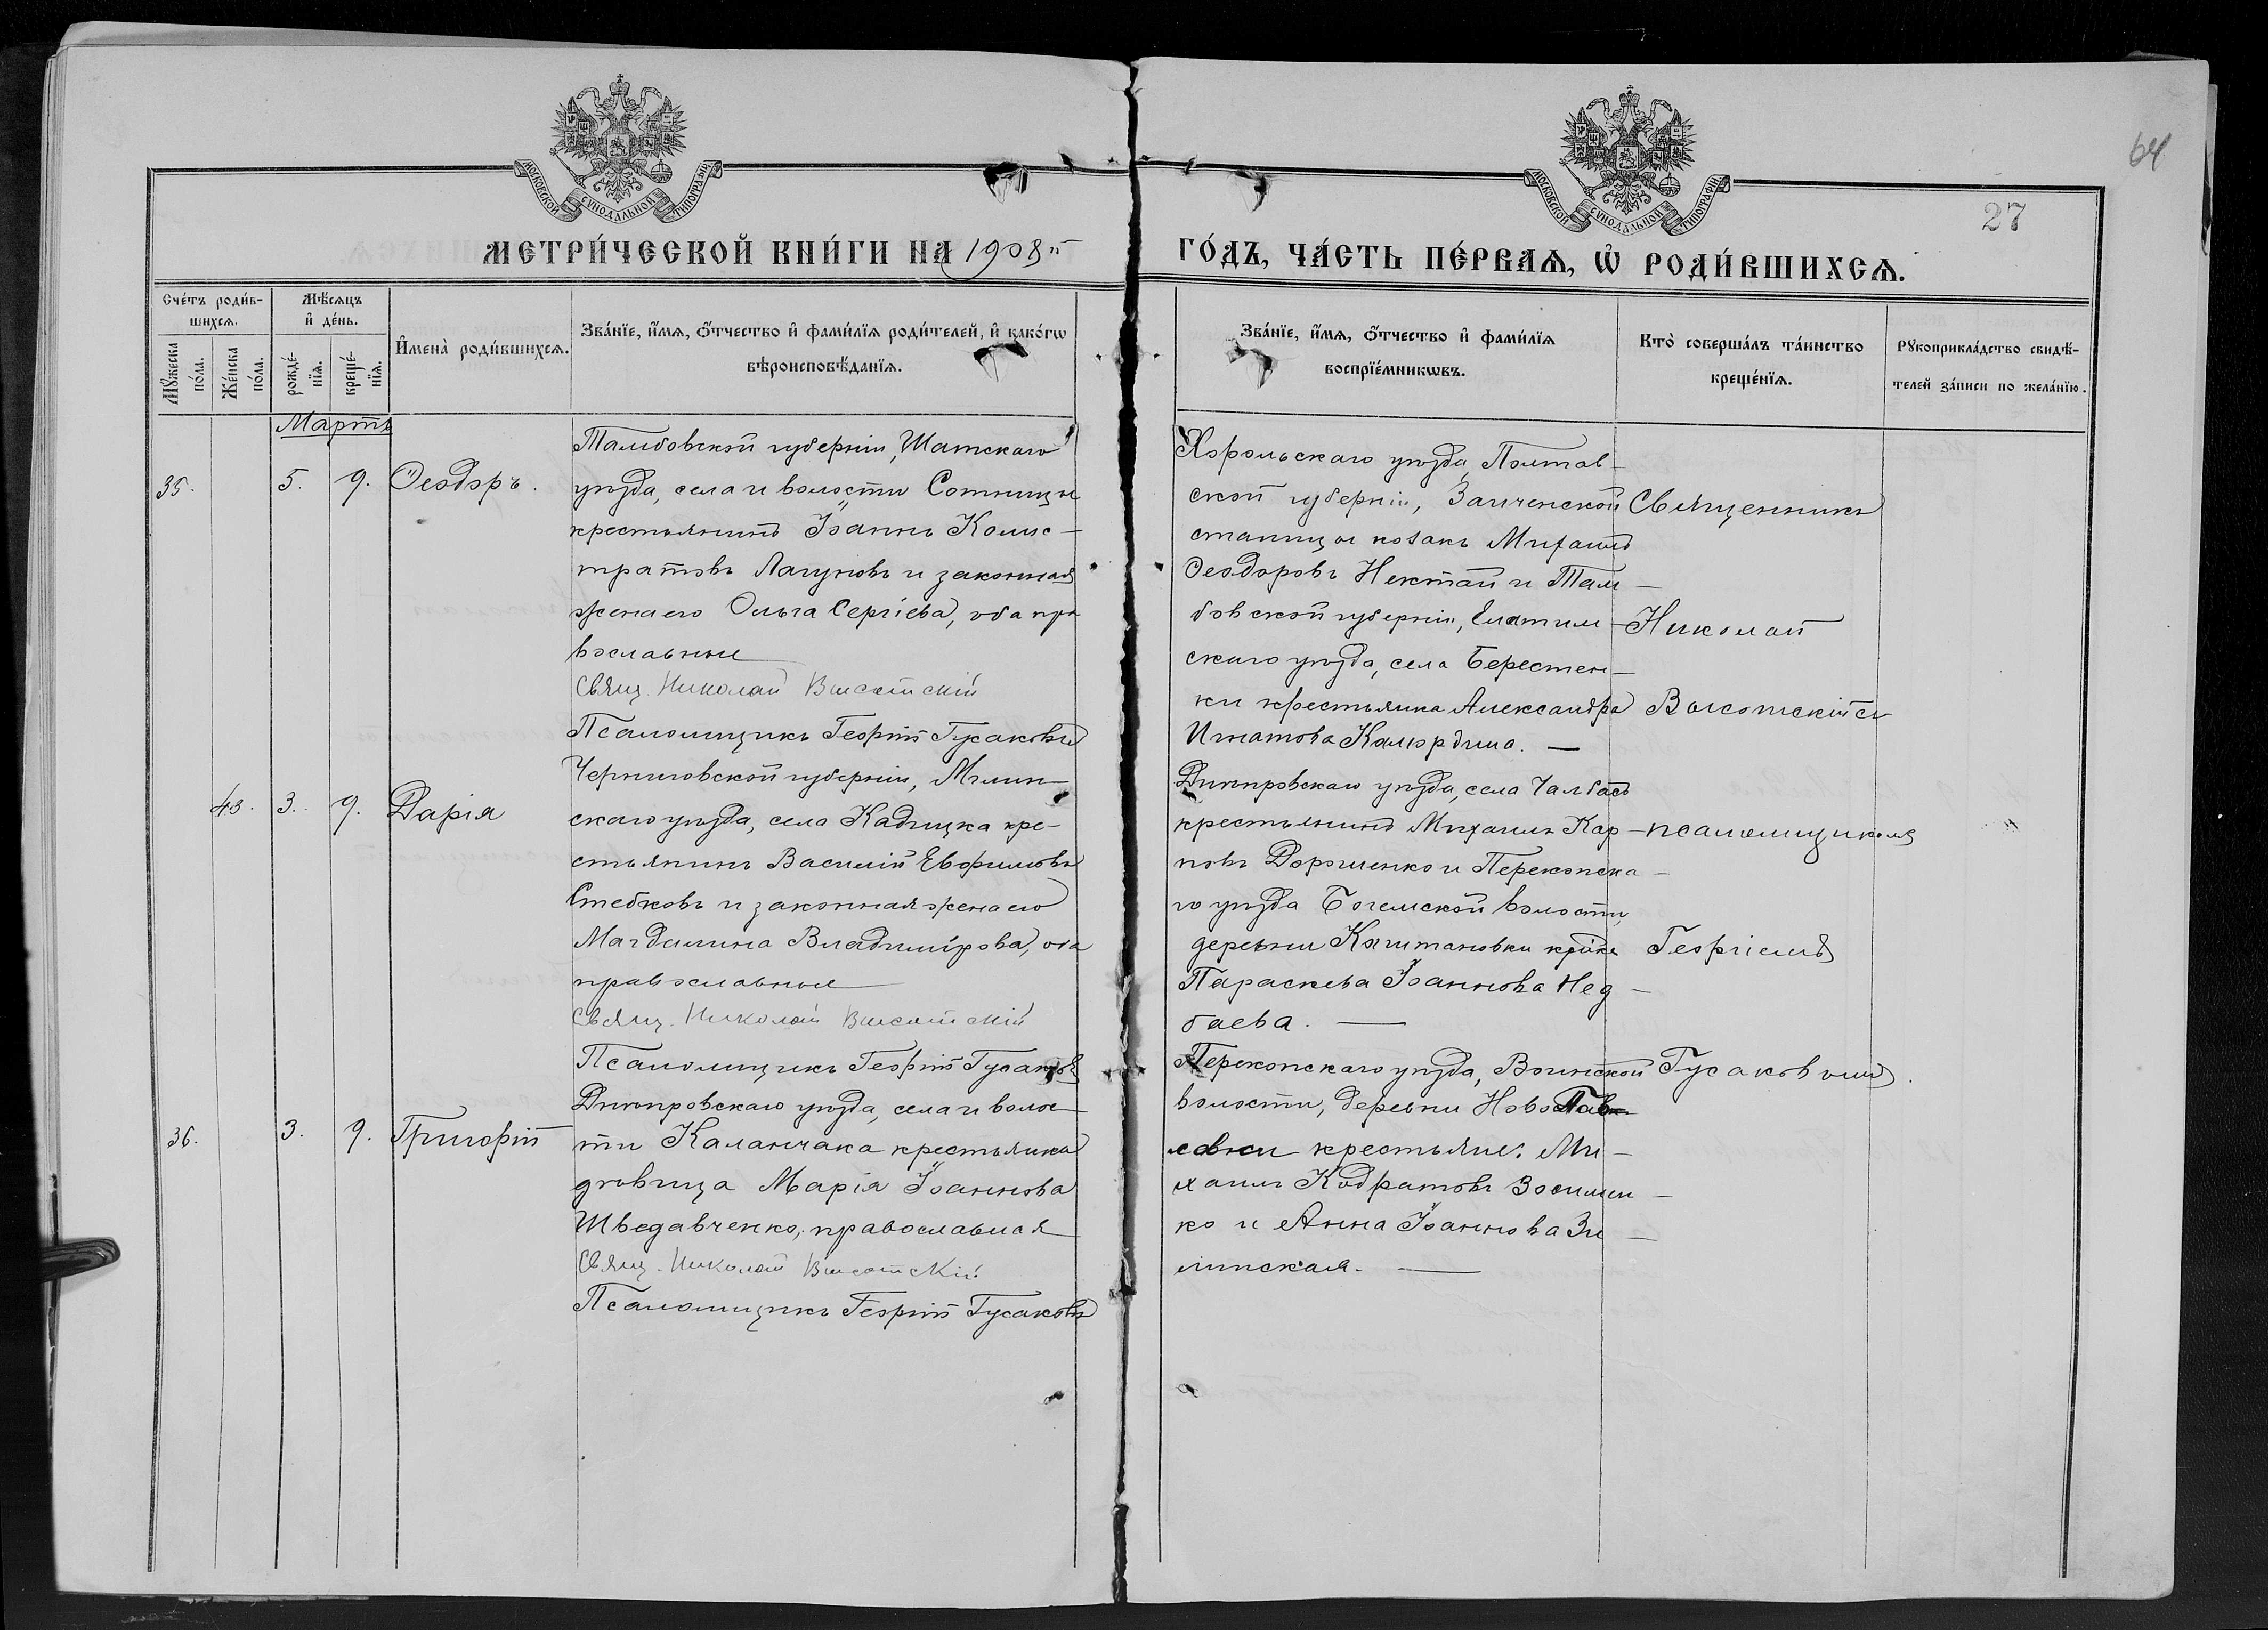 64
27
МОСКОВСКОЙ СѴНОДАЛЬНОЙ ТИПОГРАФІИ
МОСКОВСКОЙ СѴНОДАЛЬНОЙ ТИПОГРАФІИ
МЕТРИ́ЧЕСКОЙ КНИ́ГИ НА 1908й
ГО́ДЪ, ЧА́СТЬ ПЕ́РВАѦ, Ѡ҆ РОДИ́ВШИХСѦ.
Сче́тъ роди́в-
шихсѧ.
Мꙋ́жеска по́ла.
Же́нска по́ла.
Мѣ́сѧцъ
и҆ де́нь.
рожде́-нїѧ.
креще́-нїѧ.
И҆мена̀ роди́вшихсѧ.
Зва́нїе, и҆́мѧ, ѻ҆́тчество и҆ фами́лїѧ роди́телей, и҆ како́гѡ
вѣроисповѣ́данїѧ.
Зва́нїе, и҆́мѧ, ѻ҆́тчество и҆ фами́лїѧ
воспрїе́мникѡвъ.
Кто̀ соверша́лъ та́инство
креще́нїѧ.
Рꙋкоприкла́дство свидѣ́-
телей за́писи по жела́нїю.
Мартъ
35. 5. 9. Ѳеодоръ.
Тамбовской губерніи, Шатскаго
уѣзда, села и волости Сотницы
крестьянинъ Іоаннъ Калис-
тратовъ Лагуновъ и законная
жена его Ольга Сергіева, оба пра
вославные
Свящ. Николай Высотскій
Псаломщикъ Георгій Гусаковъ
Хорольскаго уѣзда, Полтав-
ской губерніи, Заиченской
станицы козакъ Михаилъ
Ѳеодоровъ Нехтай и Там-
бовской губерніи, Елатим-
скаго уѣзда, села Берестен-
ки крестьянка Александра
Игнатова Камордина.
43. 3. 9. Дарія
Черниговской губерніи, Мглин-
скаго уѣзда, села Кадецка кре-
стьянинъ Василій Евфимовъ
Стебковъ и законная жена его
Магдалина Владимірова, оба
православные
Свящ. Николай Высотскій
Псаломщикъ Георгій Гусаковъ
Днѣпровскаго уѣзда, села Чалбасъ
крестьянинъ Михаилъ Кар-
повъ Дорошенко и Перекопска-
го уѣзда Богемской волости,
деревни
Параскева Іоаннова Нед-
баева.
36. 3. 9. Григорій
Днѣпровскаго уѣзда, села и волос-
ти Каланчака крестьянка
дѣвица Марія Іоаннова
Шведавченко, православная
Свящ. Николай Высотскій
Псаломщикъ Георгій Гусаковъ
Перекопскаго уѣзда, Воинской
волости, деревни НовоПав-
ловки крестьяне: Ми-
хаилъ Кодратовъ Зосимен-
ко и Анна Іоаннова Зи-
линская.
Священникъ
Николай
Высотскій съ
псаломщикомъ
Георгіемъ
Гусаковымъ.